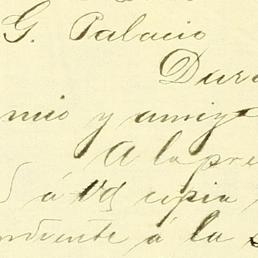 G. Palacio
Dura
mio y amig
A la pre
á Vd copia
ndiente á la s